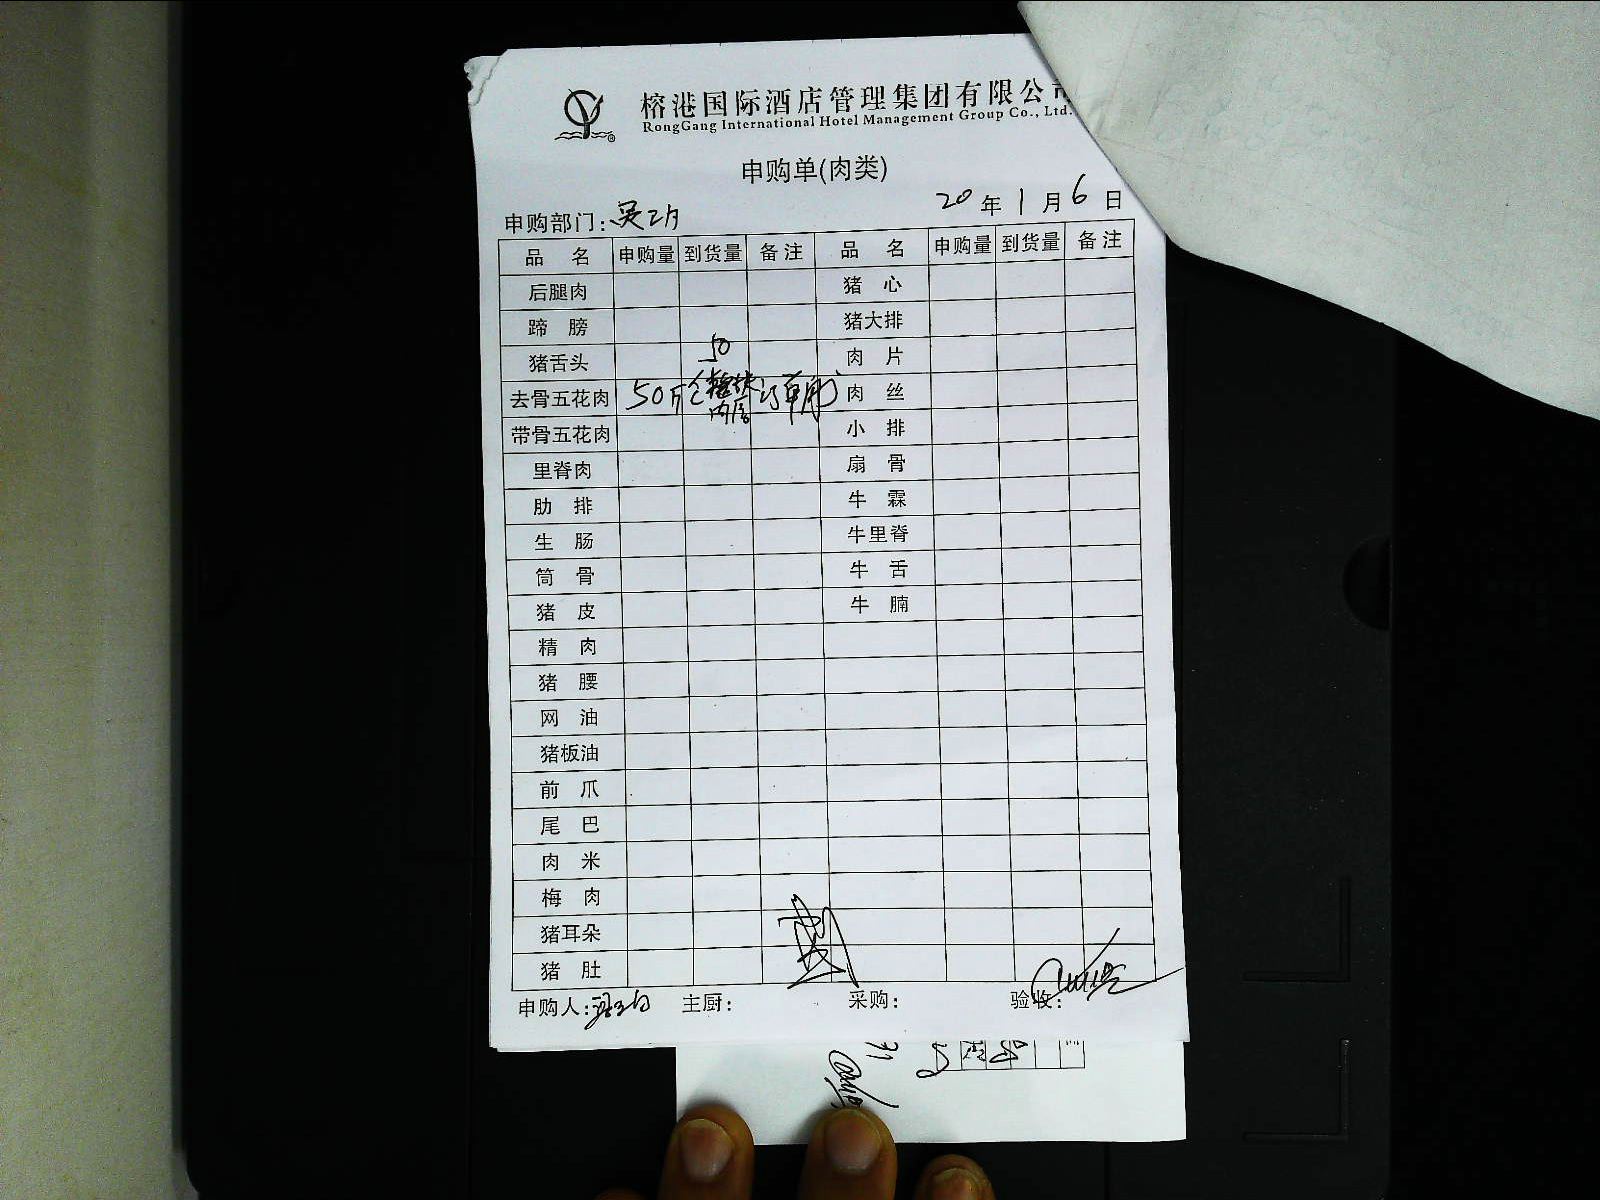 榕港国际酒店管理集团有限公司
RongGang International Hotel Management Group Co., Ltd.
申购单(肉类)
20年1月6日
申购部门:
品名 申购量 到货量 备注 品名 申购量 到货量 备注
后腿肉 猪心
蹄膀 猪大排
猪舌头 50 肉片
去骨五花肉 50斤 订单用 肉丝
带骨五花肉 小排
里脊肉 扇骨
肋排 牛霖
生肠 牛里脊
筒骨 牛舌
猪皮 牛腩
精肉
猪腰
网油
猪板油
前爪
尾巴
肉米
梅肉
猪耳朵
猪肚
申购人: 主厨: 采购: 验收: